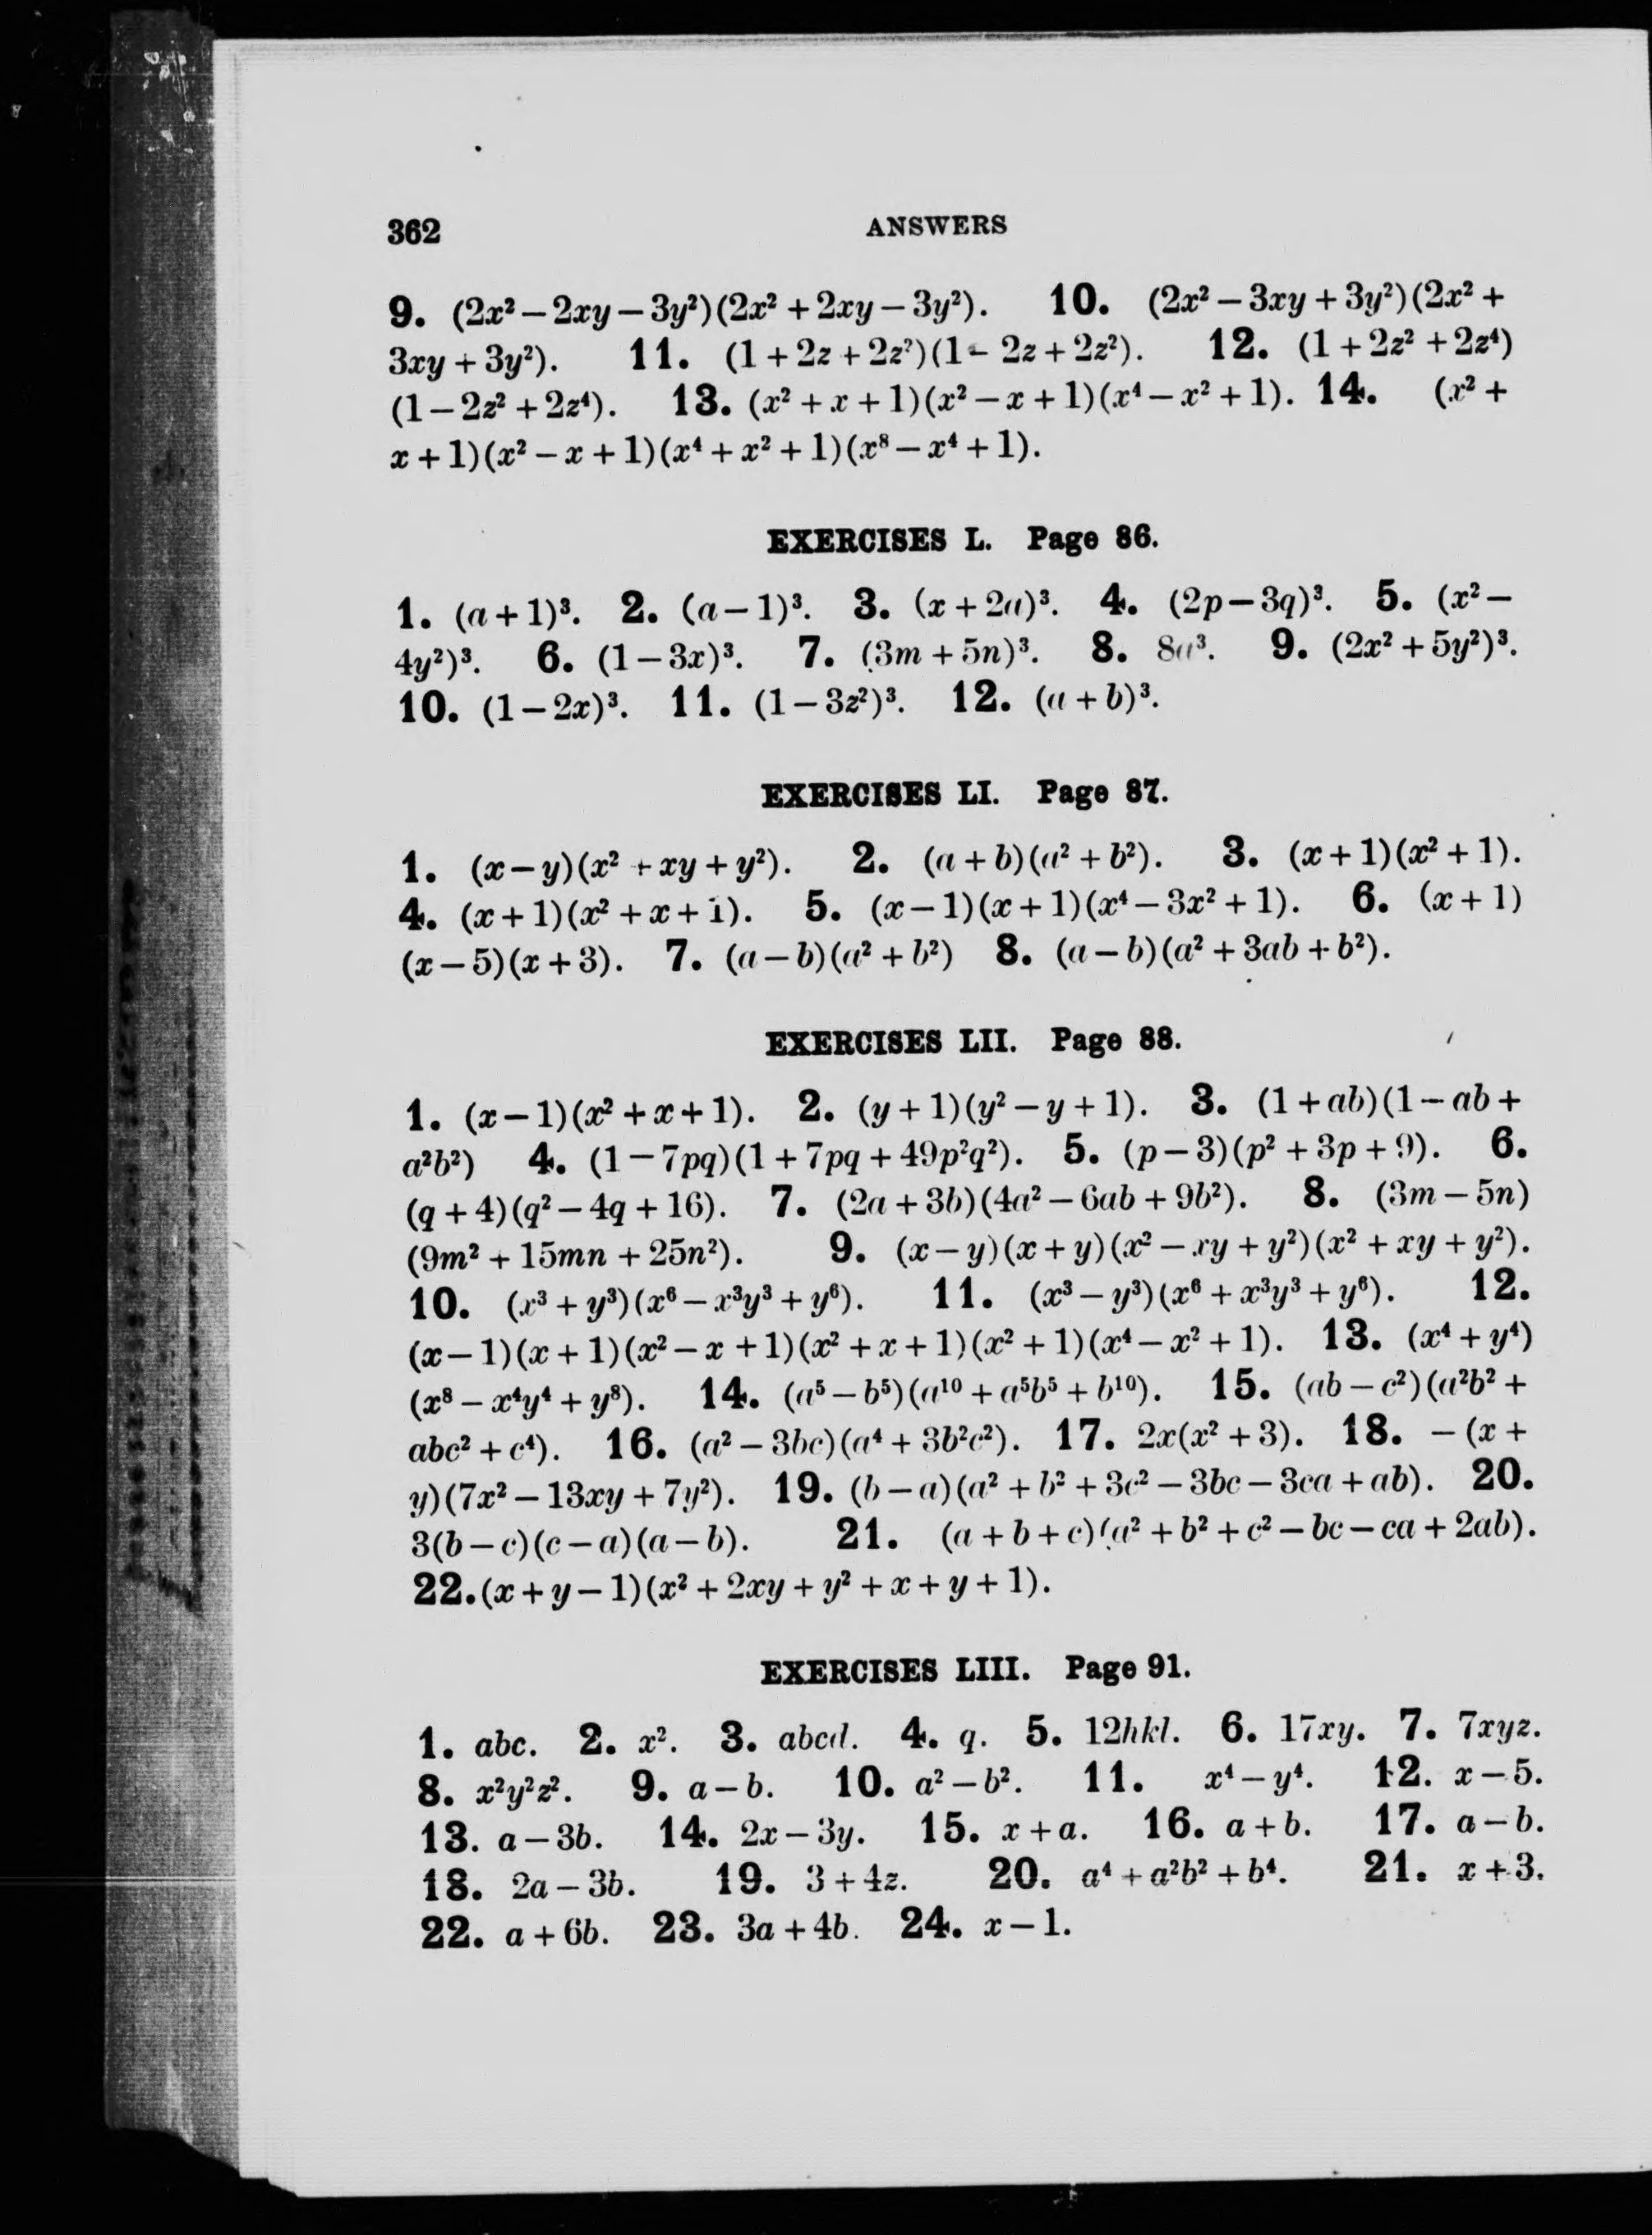 362 ANSWERS
9. (2x² − 2xy − 3y²)(2x² + 2xy − 3y²). 10. (2x² − 3xy + 3y²)(2x² +
3xy + 3y²). 11. (1 + 2z + 2z²)(1 − 2z + 2z²). 12. (1 + 2z² + 2z⁴)
(1 − 2z² + 2z⁴). 13. (x² + x + 1)(x² − x + 1)(x⁴ − x² + 1). 14. (x² +
x + 1)(x² − x + 1)(x⁴ + x² + 1)(x⁸ − x⁴ + 1).
EXERCISES L. Page 86.
1. (a + 1)³. 2. (a − 1)³. 3. (x + 2a)³. 4. (2p − 3q)³. 5. (x² −
4y²)³. 6. (1 − 3x)³. 7. (3m + 5n)³. 8. 8a³. 9. (2x² + 5y²)³.
10. (1 − 2x)³. 11. (1 − 3z²)³. 12. (a + b)³.
EXERCISES LI. Page 87.
1. (x − y)(x² + xy + y²). 2. (a + b)(a² + b²). 3. (x + 1)(x² + 1).
4. (x + 1)(x² + x + 1). 5. (x − 1)(x + 1)(x⁴ − 3x² + 1). 6. (x + 1)
(x − 5)(x + 3). 7. (a − b)(a² + b²) 8. (a − b)(a² + 3ab + b²).
EXERCISES LII. Page 88.
1. (x − 1)(x² + x + 1). 2. (y + 1)(y² − y + 1). 3. (1 + ab)(1 − ab +
a²b²) 4. (1 − 7pq)(1 + 7pq + 49p²q²). 5. (p − 3)(p² + 3p + 9). 6.
(q + 4)(q² − 4q + 16). 7. (2a + 3b)(4a² − 6ab + 9b²). 8. (3m − 5n)
(9m² + 15mn + 25n²). 9. (x − y)(x + y)(x² − xy + y²)(x² + xy + y²).
10. (x³ + y³)(x⁶ − x³y³ + y⁶). 11. (x³ − y³)(x⁶ + x³y³ + y⁶). 12.
(x − 1)(x + 1)(x² − x + 1)(x² + x + 1)(x² + 1)(x⁴ − x² + 1). 13. (x⁴ + y⁴)
(x⁸ − x⁴y⁴ + y⁸). 14. (a⁵ − b⁵)(a¹⁰ + a⁵b⁵ + b¹⁰). 15. (ab − c²)(a²b² +
abc² + c⁴). 16. (a² − 3bc)(a⁴ + 3b²c²). 17. 2x(x² + 3). 18. − (x +
y)(7x² − 13xy + 7y²). 19. (b − a)(a² + b² + 3c² − 3bc − 3ca + ab). 20.
3(b − c)(c − a)(a − b). 21. (a + b + c)(a² + b² + c² − bc − ca + 2ab).
22. (x + y − 1)(x² + 2xy + y² + x + y + 1).
EXERCISES LIII. Page 91.
1. abc. 2. x². 3. abcd. 4. q. 5. 12hkl. 6. 17xy. 7. 7xyz.
8. x²y²z². 9. a − b. 10. a² − b². 11. x⁴ − y⁴. 12. x − 5.
13. a − 3b. 14. 2x − 3y. 15. x + a. 16. a + b. 17. a − b.
18. 2a − 3b. 19. 3 + 4z. 20. a⁴ + a²b² + b⁴. 21. x + 3.
22. a + 6b. 23. 3a + 4b. 24. x − 1.